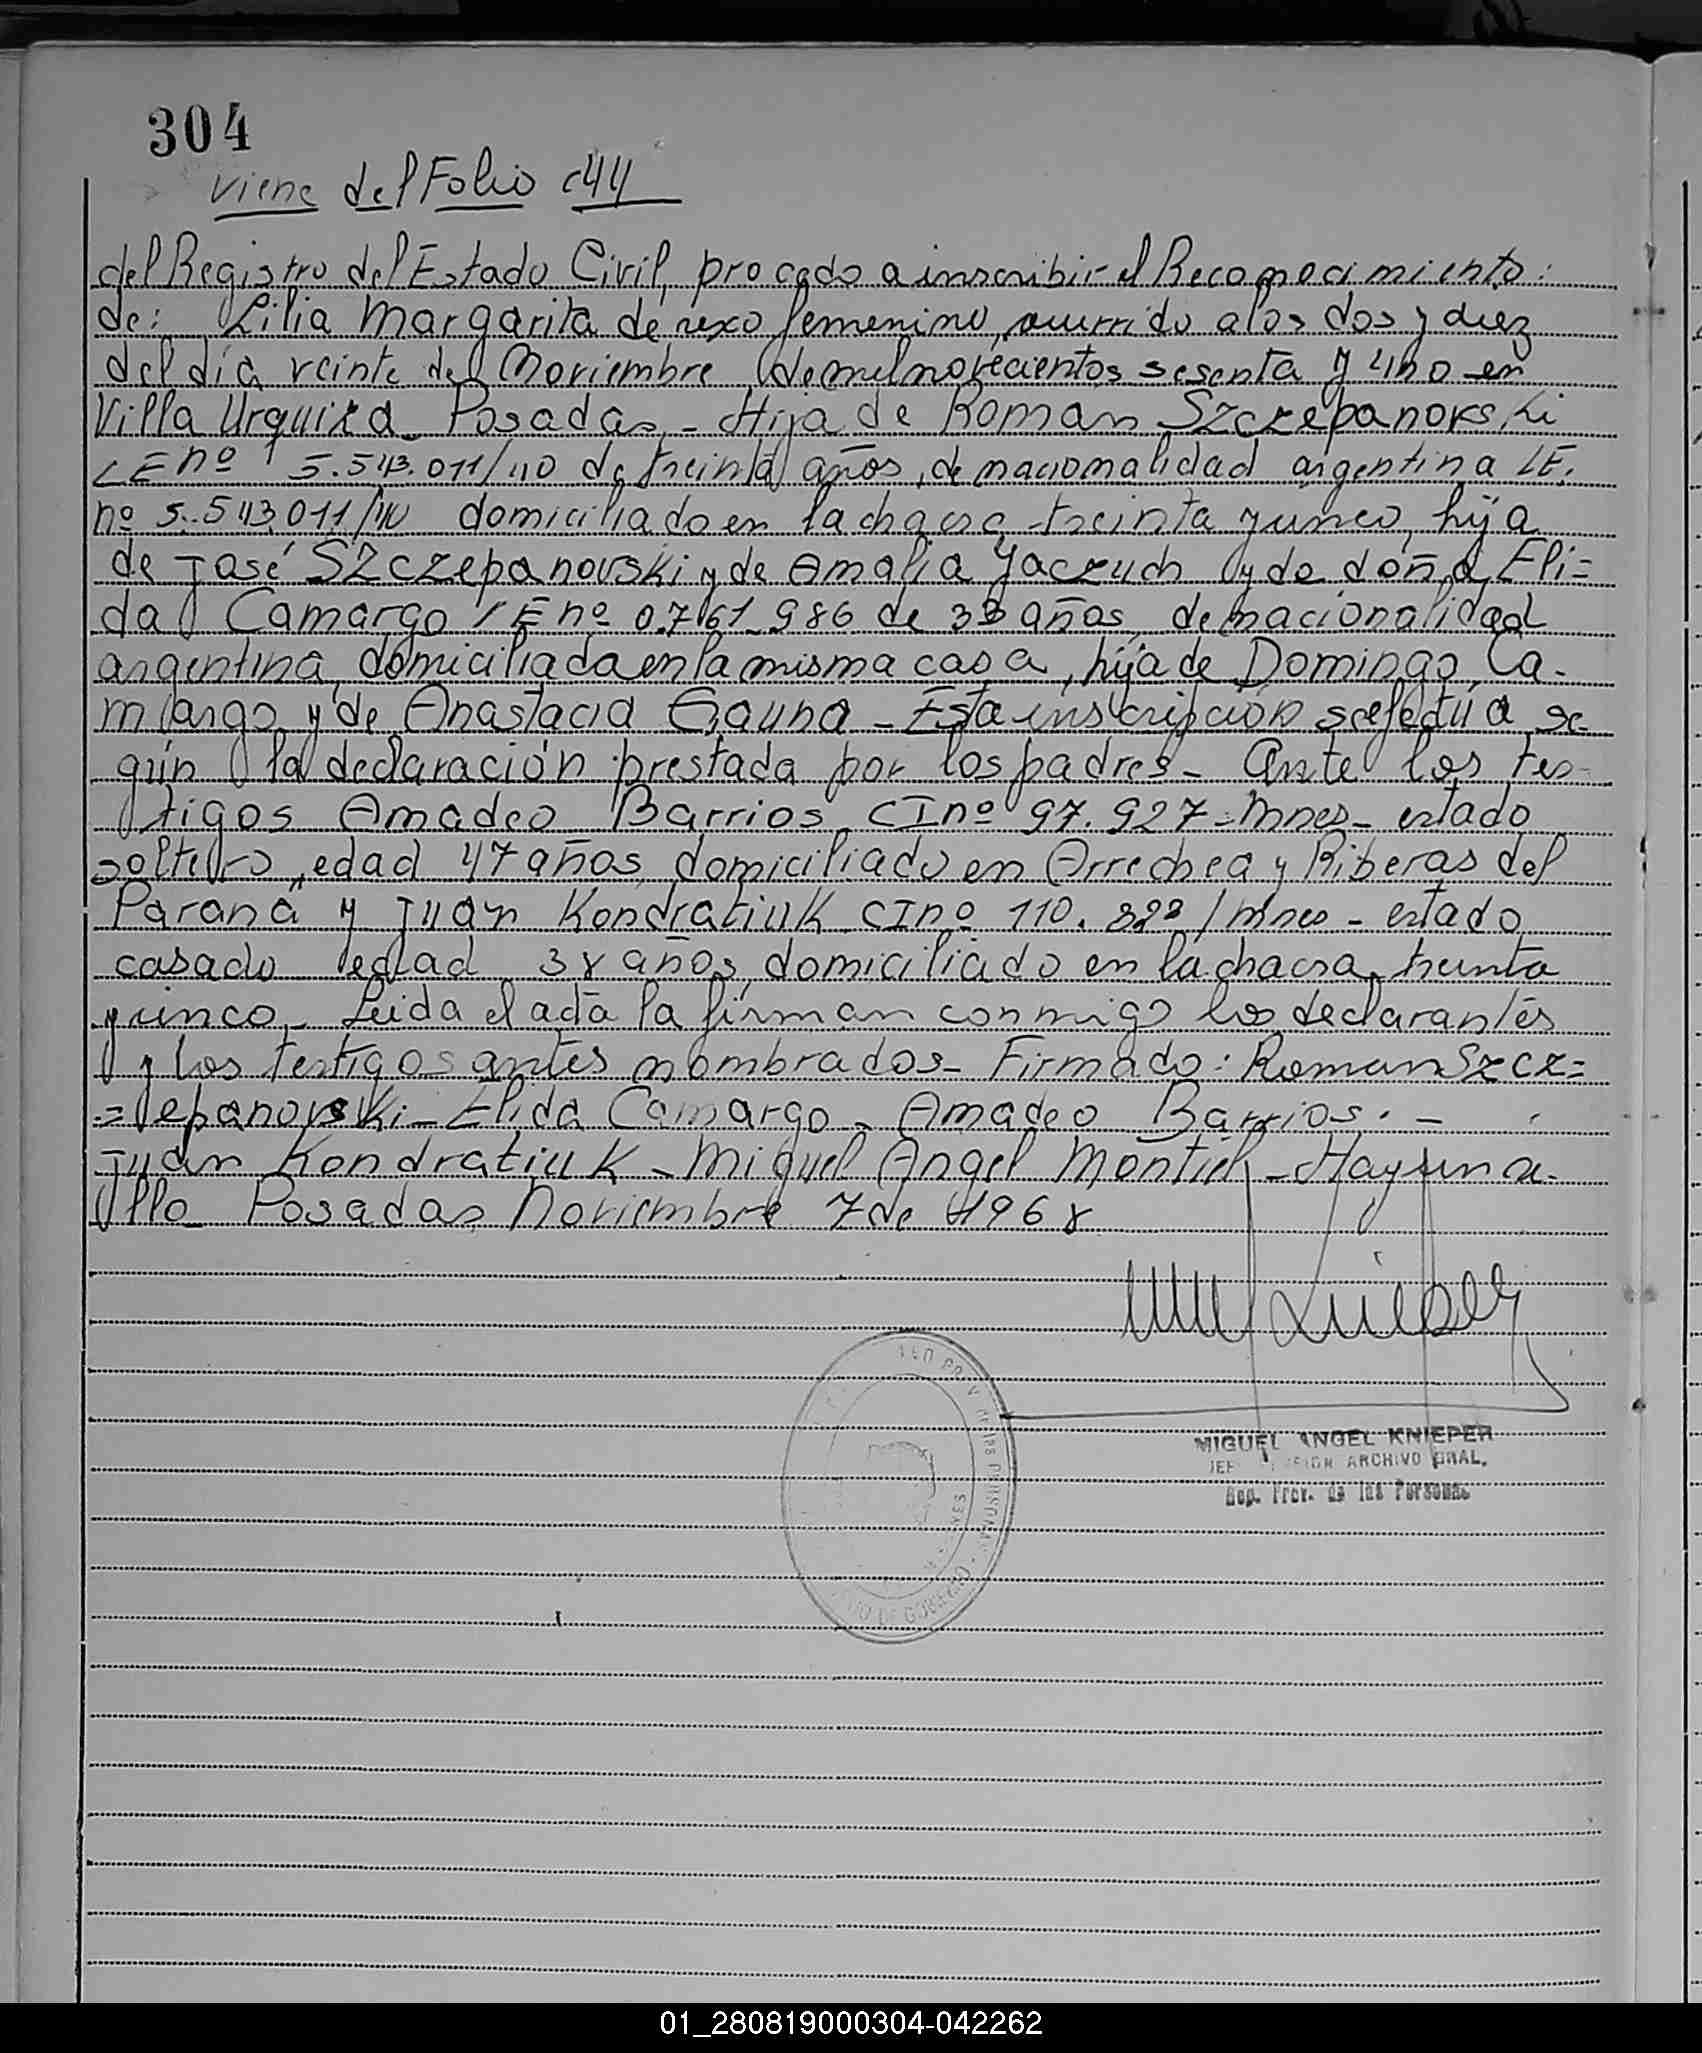 304
Viene del Folio 44
del Registro del Estado Civil, procedo a inscribir el Reconocimiento:
de: Lilia Margarita de sexo femenino, ocurrido a los dos y diez
del día veinte de Noviembre de mil novecientos sesenta y uno en
Villa Urquiza Posadas - Hija de Roman Szczepanovski
LE nº 5.543.011/40 de treinta años, de nacionalidad argentina LE.
nº 5.543.011/40 domiciliado en la chacra treinta y cinco, hija
de José Szczepanovski y de Amalia Jaczuch y de doña Eli=
da Camargo LE nº 0.761.986 de 33 años, de nacionalidad
argentina, domiciliada en la misma casa, hija de Domingo Ca-
margo y de Anastacia Gauna - Esta inscripción se efectúa se-
gún la declaración prestada por los padres - Ante los tes-
tigos Amadeo Barrios CI nº 97.927 = Mnes - estado
soltero, edad 47 años, domiciliado en Arrechea y Riberas del
Paraná y Juan Kondratiuk CI nº 110. /Mnes - estado
casado edad 38 años, domiciliado en la chacra treinta
y cinco - Leida el acta la firman conmigo los declarantes
y los testigos antes nombrados - Firmado: Roman Szcz=
=epanovski - Elida Camargo - Amadeo Barrios. -
Juan Kondratiuk - Miguel Angel Montiel - Hay un se-
llo Posadas Noviembre 7 de 1968
MIGUEL ANGEL KNIEPER
ARCHIVO GRAL.
Rep. Prov. de las Personas
01_280819000304-042262